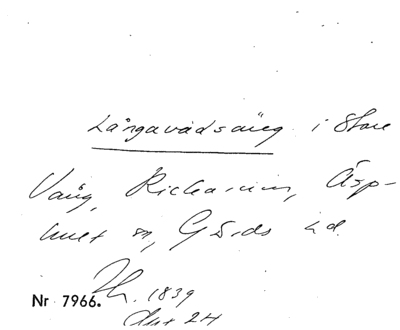 Långavadsäng i Store
Vång, Rickarum, Äsp-
huet sn, Gärds hd.
Nr 7966. Th. 1839
Akt 24